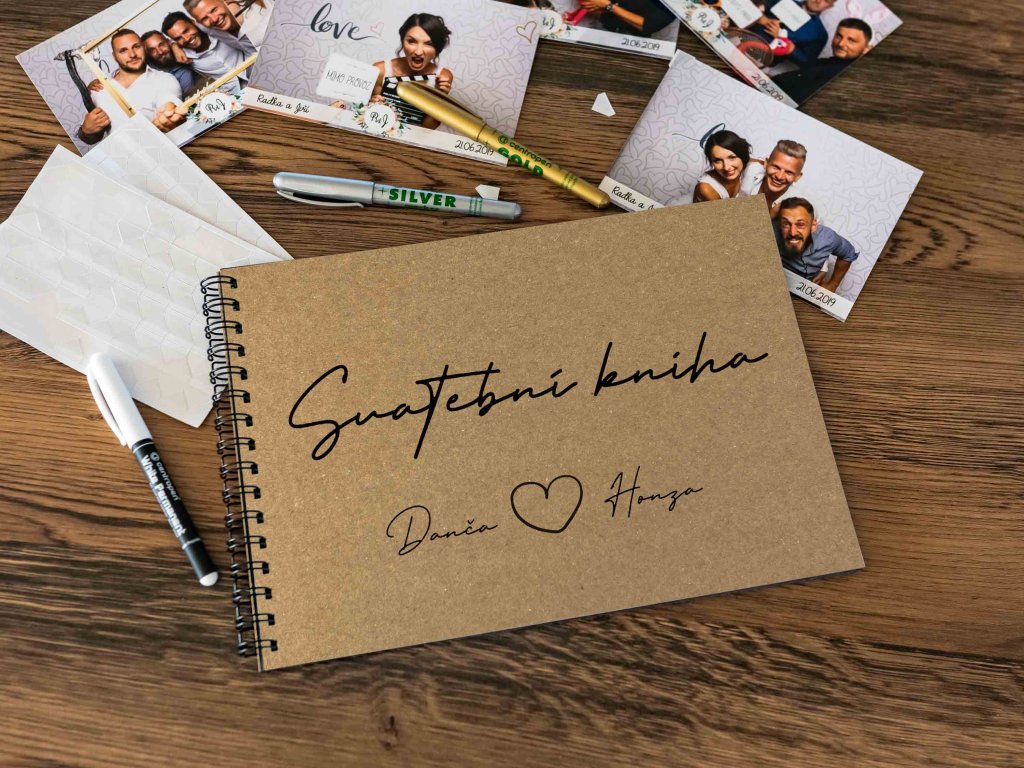 love
MIMO PROVOZ
Radka a Jiří
R&J
21.06.2019
R&J
21.06.2019
21.06.2019
centropen
GOLD
SILVER
Radka a
21.06.2019
centropen
White Permanent
Svatební kniha
Danča Honza